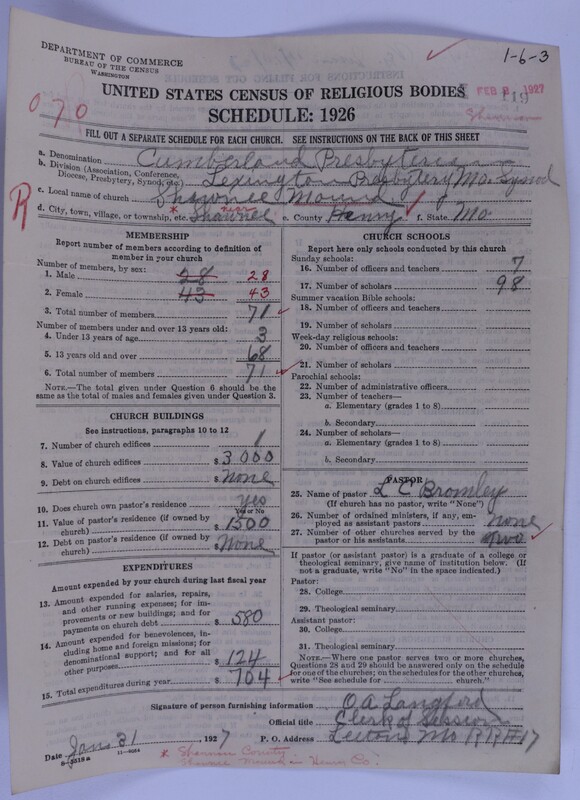 1-6-3
DEPARTMENT OF COMMERCE
BUREAU OF THE CENSUS
WASHINGTON
UNITED STATES CENSUS OF RELIGIOUS BODIES
FEB 1927
119
SCHEDULE: 1926
Shannon
070
FILL OUT A SEPARATE SCHEDULE FOR EACH CHURCH. SEE INSTRUCTIONS ON THE BACK OF THIS SHEET
a. Denomination Cumberland Presbyterian
b. Division (Association, Conference, Diocese, Presbytery, Synod, etc.) Lexington Presbytery Mo. Synod
c. Local name of church Shawnee Mound
R
d. City, town, village, or township, etc. * Shawnee e. County Henry f. State Mo
MEMBERSHIP
Report number of members according to definition of
member in your church
Number of members, by sex:
1. Male 28 28
2. Female 43 43
3. Total number of members 71
Number of members under and over 13 years old:
4. Under 13 years of age 3
5. 13 years old and over 68
6. Total number of members 71
NOTE.—The total given under Question 6 should be the
same as the total of males and females given under Question 3.
CHURCH BUILDINGS
See instructions, paragraphs 10 to 12
7. Number of church edifices 1
8. Value of church edifices $ 3 000
9. Debt on church edifices $ None
10. Does church own pastor's residence yes
Yes or No
11. Value of pastor's residence (if owned by
church) $ 1500
12. Debt on pastor's residence (if owned by
church) $ None
EXPENDITURES
Amount expended by your church during last fiscal year
13. Amount expended for salaries, repairs,
and other running expenses; for im-
provements or new buildings; and for
payments on church debt $ 580
14. Amount expended for benevolences, in-
cluding home and foreign missions; for
denominational support; and for all
other purposes $ 124
15. Total expenditures during year $ 704
CHURCH SCHOOLS
Report here only schools conducted by this church
Sunday schools:
16. Number of officers and teachers 7
17. Number of scholars 98
Summer vacation Bible schools:
18. Number of officers and teachers
19. Number of scholars
Week-day religious schools:
20. Number of officers and teachers
21. Number of scholars
Parochial schools:
22. Number of administrative officers
23. Number of teachers—
a. Elementary (grades 1 to 8)
b. Secondary
24. Number of scholars—
a. Elementary (grades 1 to 8)
b. Secondary
PASTOR
25. Name of pastor L C Bromley
(If church has no pastor, write "None")
26. Number of ordained ministers, if any, em-
ployed as assistant pastors none
27. Number of other churches served by the
pastor or his assistants two
If pastor (or assistant pastor) is a graduate of a college or
theological seminary, give name of institution below. (If
not a graduate, write "No" in the space indicated.)
Pastor:
28. College
29. Theological seminary
Assistant pastor:
30. College
31. Theological seminary
NOTE.—Where one pastor serves two or more churches,
Questions 28 and 29 should be answered only on the schedule
for one of the churches; on the schedules for the other churches,
write "See schedule for church."
Signature of person furnishing information O A Langford
Official title Clerk of Session
Date Jan 31, 1927 P. O. Address Leeton Mo R R # 17
8-5518 a 11-9064
* Shawnee County
Shawnee Mound in Henry Co.